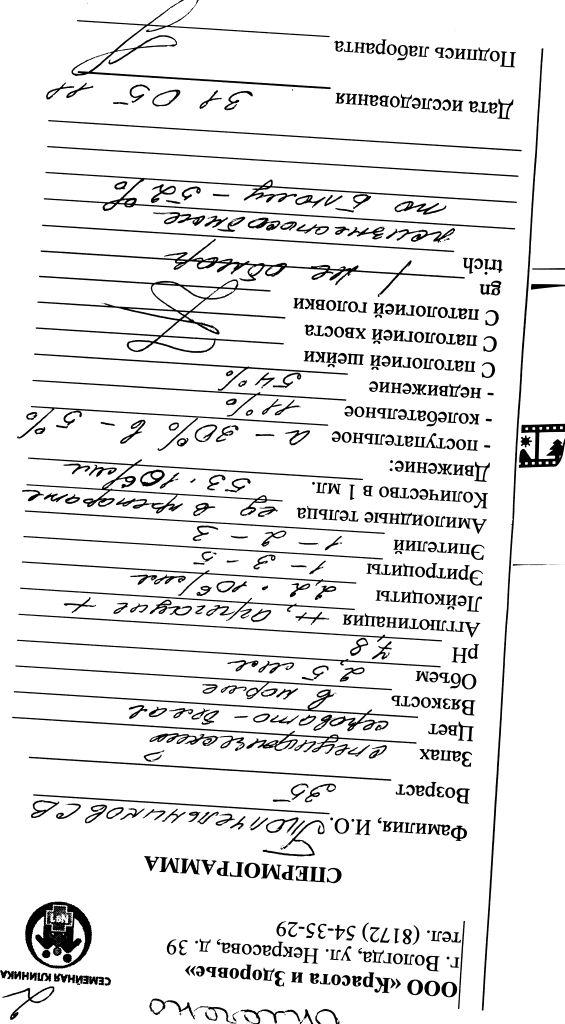 оплачено
2
СЕМЕЙНАЯ КЛИНИКА
№1
ООО «Красота и Здоровье»
г. Вологда, ул. Некрасова, д. 39
тел. (8172) 54-35-29
СПЕРМОГРАММА
Фамилия, И.О. СВ
Возраст 35
Запах специфический
Цвет серовато-белая
Вязкость в норме
Объем 2,5 мл
pH 7,8
Агглютинация ++, агрегация +
Лейкоциты 2,2 · 10⁶/мл
Эритроциты 1-3-5
Эпителий 1-2-3
Амилоидные тельца ед в препарате
Количество в 1 мл. 53 · 10⁶/мл
Движение:
- поступательное а - 30% в - 5%
- колебательное 11%
- недвижение 54%
С патологией шейки
С патологией хвоста
С патологией головки
gn
trich не обнар
жизнеспособные
по Блюму - 52%
Дата исследования 31 05 11
Подпись лаборанта